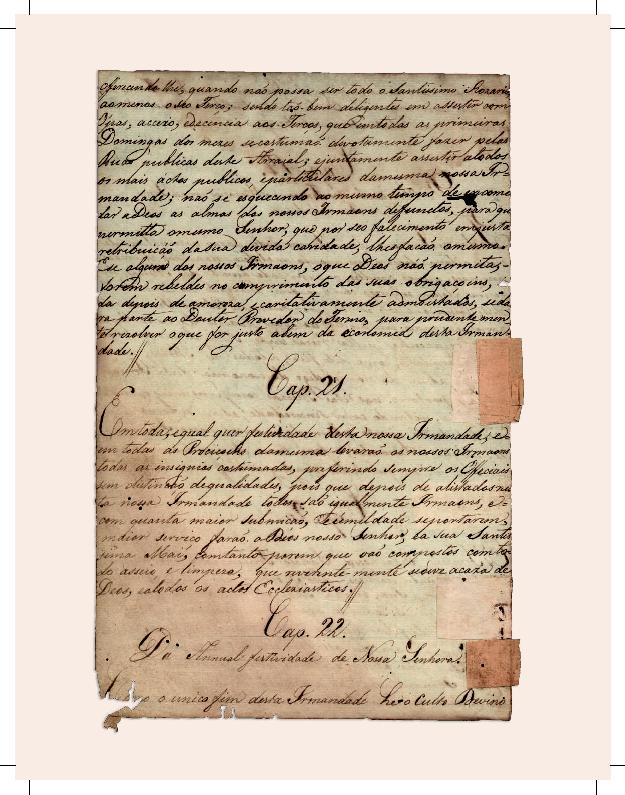 oferecendo lhe, quando não possa ser todo o Santissimo Rozario
ao menos o seo Terço; sendo tão bem deligentes em assestir com
vivas, aceio, edecencia aos Terços, que em todas as primeiras
Domingas dos mezes se costumão devotamente fazer pelas
Ruas publicas deste Arraial; ejuntamente assestir atodos
os mais actos publicos, eparticulares damesma nossa Ir-
mandade; não se esquecendo ao mesmo tempo de encome
dar a Deos as almas dos nossos Irmaons defunctos, para que
permitta omesmo Senhor, que por seo falecimento em justa
retribuição da sua devida caridade, lhes fação omesmo.
Ese alguns dos nossos Irmaons, oque Deos não permita,
forem rebeldes no comprimento das suas obrigaçoens,
da depois de amoroza, ecaritativamente admoestados, se da
ra parte ao Doutor Provedor do Termo, para prudentemen
te rezolver oque for justo abem da economia desta Irman
dade.
Cap. 21.
Em toda, equal quer festividade desta nossa Irmandade, e
em todas as Procissoens damesma levarão os nossos Irmaons
todas as insignias costumadas, preferindo sempre os Officiais
sem distinção dequalidades, pois que depois de alistados nes
ta nossa Irmandade todos são igualmente Irmaons, e
com quanta maior submição, e umildade seportarem,
maior serviço farão a Deos nosso Senhor, e a sua Santis
sima Mai, comtanto porem que vão compostos com to-
do asseio e limpeza, que reverente-mente sedeve acaza de
Deos, eatodos os actos Eccleziasticos.
Cap. 22.
Da Annual festividade de Nossa Senhora.
o unico fim desta Irmandade he o Culto Devino